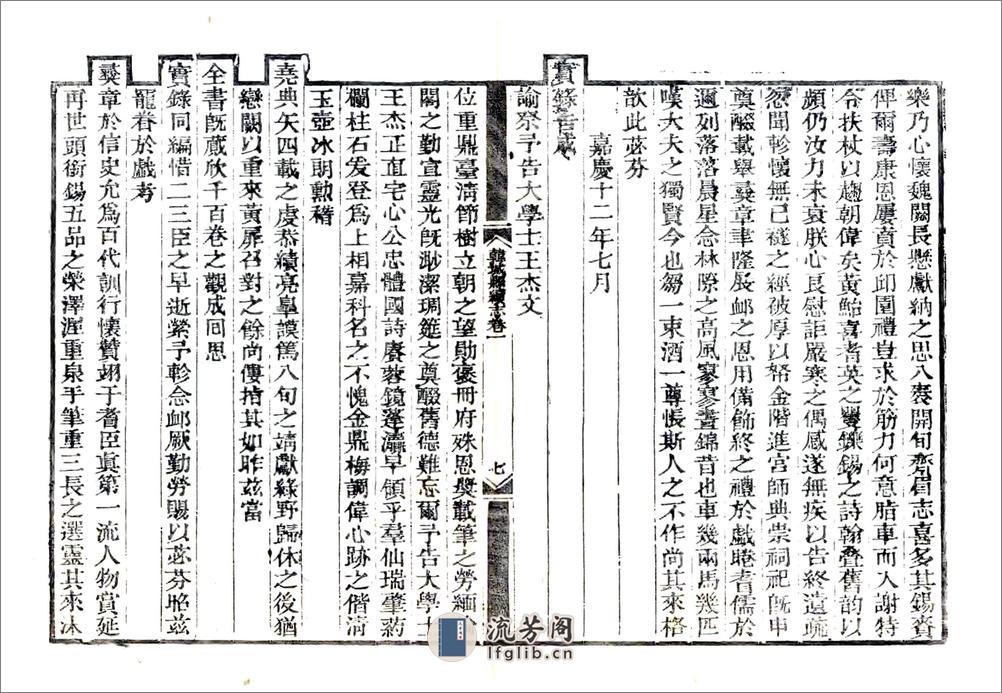 樂乃心懷魏闕長懸獻納之思八袠開旬齊眉志喜多其錫賚
俾爾壽康恩屢賁於邱園禮豈求於筋力何意脂車而入謝特
令扶杖以趨朝偉矣黃鮐喜者英之矍鑠錫之詩翰疊舊韵以
頻仍汝力未衰朕心良慰詎嚴寒之偶感遂無疾以告終遺疏
忽聞軫懷無已襚之經被厚以帑金階進宮師典崇祠祀旣申
奠醊載舉彝章聿隆展卹之恩用備飾終之禮於戲睠耆儒於
邇列落落晨星念林際之高風寥寥晝錦昔也車幾兩馬幾匹
嘆大夫之獨賢今也芻一束酒一尊悵斯人之不作尚其來格
歆此苾芬
嘉慶十二年七月
實錄告成
諭祭予告大學士王杰文
韓城縣續志卷一
七
位重鼎臺淸節樹立朝之望勛褒冊府殊恩奬載筆之勞緬
閣之勤宣靈光旣渺潔琱筵之奠醊舊德難忘爾予告大學士
王杰正直宅心公忠體國詩賡蓉鏡蓬瀛早領乎羣仙瑞肇葯
欄柱石发登爲上相嘉科名之不愧金鼎梅調偉心跡之偕淸
玉壺冰朗勲稽
堯典矢四載之虔恭續亮臯謨篤八旬之靖獻綠野歸休之後猶
戀闕以重來黃扉召對之餘尚僂指其如昨茲當
全書旣蕆欣千百卷之觀成囘思
實錄同編惜二三臣之早逝縈予軫念卹厥勤勞賜以苾芬昭茲
寵眷於戲考
彝章於信史允爲百代訓行懷贊翊于耆臣眞第一流人物賞延
再世頭銜錫五品之榮澤渥重泉手筆重三長之選靈其來沐
流芳阁
lfglib.cn